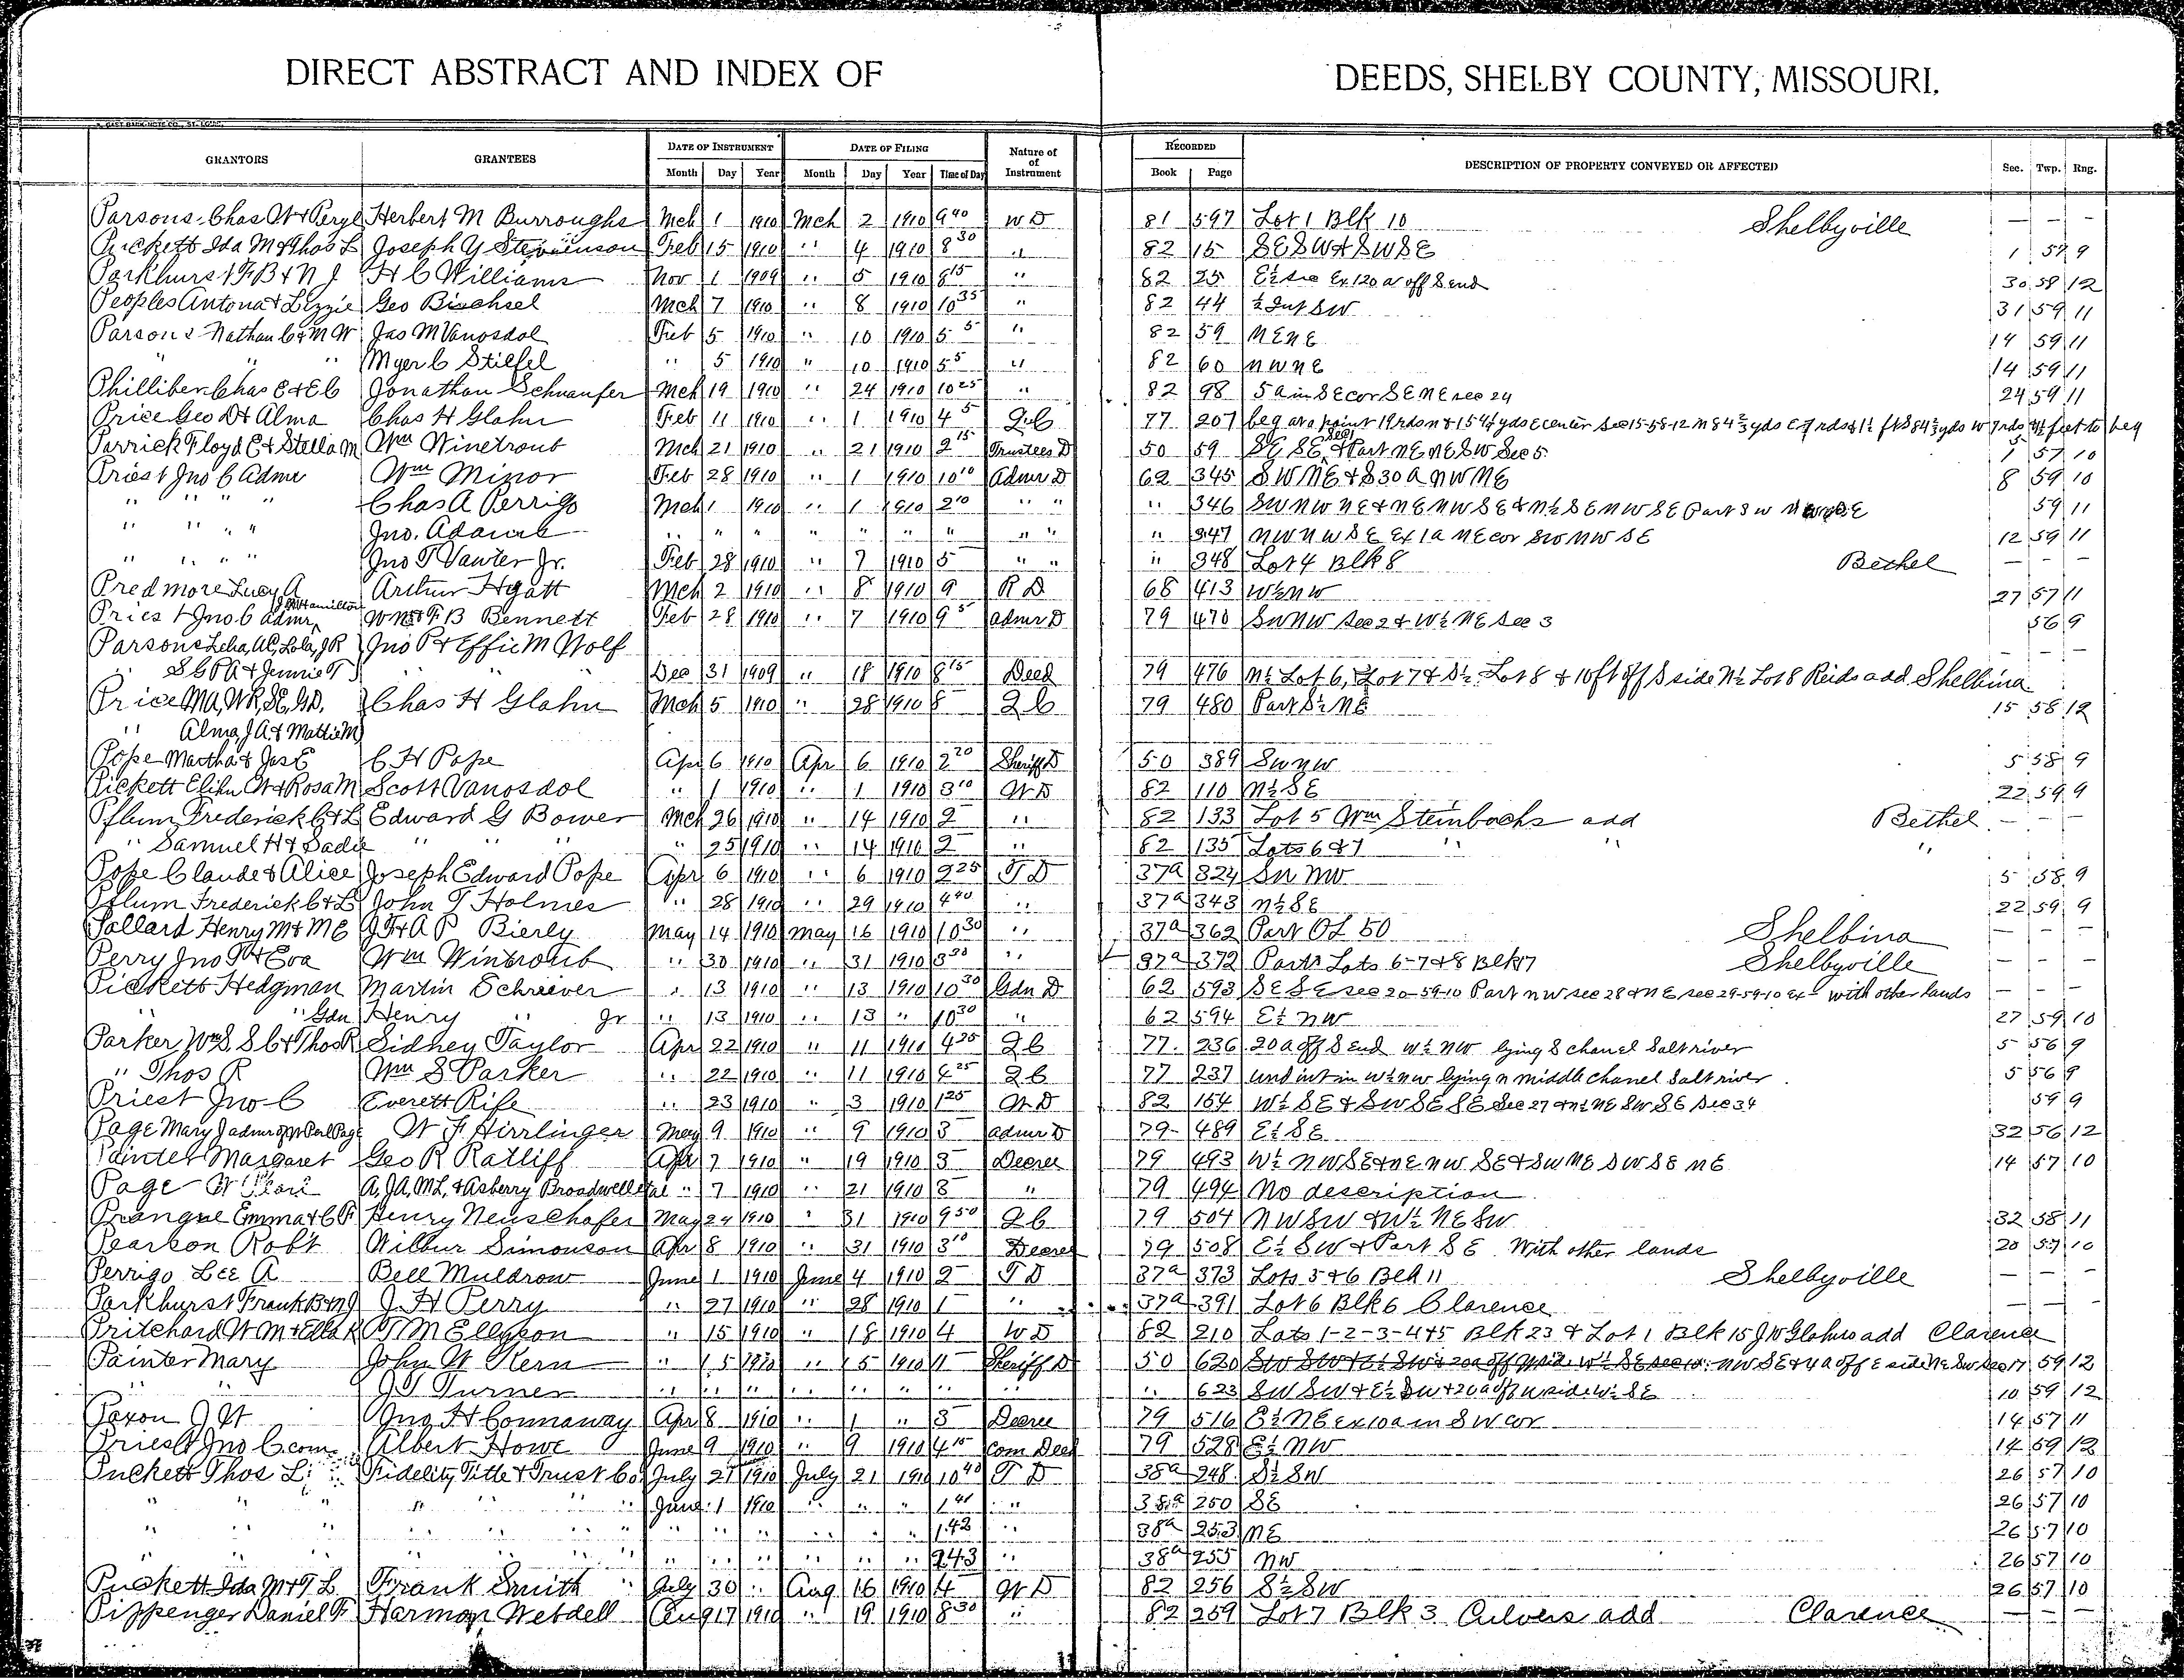 DIRECT ABSTRACT AND INDEX OF DEEDS, SHELBY COUNTY, MISSOURI.
GRANTORS GRANTEES DATE OF INSTRUMENT DATE OF FILING Nature of of Instrument RECORDED DESCRIPTION OF PROPERTY CONVEYED OR AFFECTED Sec. Twp. Rng.
Month Day Year Month Day Year Time of Day Book Page
Parsons Chas W & Peryl Herbert M Burroughs Mch 1 1910 Mch 2 1910 9 40 W D 81 597 Lot 1 Blk 10 Shelbyville — — —
Puckett Ida M & Thos L Joseph Y Stevenson Feb 15 1910 " 4 1910 8 30 " 82 15 SE SW & SW SE 1 57 9
Parkhurst F B & N J H C Williams Nov 1 1909 " 5 1910 8 15 " 82 25 E½ Sec Ex 120 a off S end 30 58 12
Peoples Antona & Lizzie Geo Bischsel Mch 7 1910 " 8 1910 10 35 " 82 44 ½ Int SW 31 59 11
Parsons Nathan C & M W Jas M Vanosdol Feb 5 1910 " 10 1910 5 5 " 82 59 NE NE 14 59 11
" " " Myer C Stiefel " 5 1910 " 10 1910 5 5 " 82 60 NW NE 14 59 11
Philliber Chas E & E C Jonathan Schwaufer Mch 19 1910 " 24 1910 10 25 " 82 98 5 a in SE cor SE NE sec 24 24 59 11
Price Geo D & Alma Chas H Glahn Feb 11 1910 " 1 1910 4 5 Q C 77 207 beg at a point 19 rds n & 15 4/7 yds E center Sec 15-58-12 N 84 ⅔ yds E 7 rds & 1½ ft S 84 ⅔ yds W 7 rds 1½ feet to beg
Parrick Floyd C & Stella M Wm Winetroub Mch 21 1910 " 21 1910 2 15 Trustees D 50 59 SE SE Sec 1 & Part NE NE SW Sec 5 1 57 10
Priest Jno C Admr Wm Minor Feb 28 1910 " 1 1910 10 10 Admr D 62 345 SW NE & S 30 a NW NE 8 59 10
" " " " Chas A Perrigo Mch 1 1910 " 1 1910 2 10 " " " 346 SW NW NE & NE NW SE & N½ SE NW SE Part SW 59 11
" " " " Jno. Adams " " " " " " " " " " 347 NW NW SE Ex 1 a NE cor SW NW SE 12 59 11
" " " " Jno T Vawter Jr. Feb 28 1910 " 7 1910 5 " " " 348 Lot 4 Blk 8 Bethel — — —
Predmore Lucy A Arthur Hyatt Mch 2 1910 " 8 1910 9 R D 68 413 W½ NW 27 57 11
Priest Jno C admr J M Hamilton W N & F B Bennett Feb 28 1910 " 7 1910 9 5 Admr D 79 470 SW NW Sec 2 & W½ NE Sec 3 56 9
Parsons Leha, W C, Lola, J R Jno P & Effie M Wolf
" S C P A & Jennie T " " Dec 31 1909 " 18 1910 8 15 Deed 79 476 N½ Lot 6, Lot 7 & S½ Lot 8 & 10 ft off S side N½ Lot 8 Reids add Shelbina — — —
Price M A, W R, S E, G D, Chas H Glahn Mch 5 1910 " 28 1910 8 Q C 79 480 Part S½ NE 15 58 12
" Alma, J A & Mattie M
Pope Martha & Jas E C H Pope Apr 6 1910 Apr 6 1910 2 20 Sheriff D 50 389 SW NW 5 58 9
Pickett Elihu W & Rosa M Scott Vanosdol " 1 1910 " 1 1910 3 10 W D 82 110 N½ SE 22 59 9
Pflum Frederick C & L Edward G Bower Mch 26 1910 " 14 1910 2 " 82 133 Lot 5 Wm Steinbachs add Bethel — — —
" Samuel H & Sadie " " " " 25 1910 " 14 1910 2 " 82 135 Lots 6 & 7 " " "
Pope Claude & Alice Joseph Edward Pope Apr 6 1910 " 6 1910 2 25 T D 37a 324 SW NW 5 58 9
Pflum Frederick C & L John T Holmes " 28 1910 " 29 1910 4 40 " 37a 343 N½ SE 22 59 9
Pollard Henry M & M E J F & A P Bierly May 14 1910 May 16 1910 10 30 " 37a 362 Part OL 50 Shelbina — — —
Perry Jno W & Eva Wm Wintroub " 30 1910 " 31 1910 3 30 " 37a 372 Parts Lots 6-7 & 8 Blk 7 Shelbyville — — —
Pickett Hedgman Martin Schriever " 13 1910 " 13 1910 10 30 Gdn D 62 593 SE SE sec 20-59-10 Part NW sec 28 & NE sec 29-59-10 Ex with other lands — — —
" Gdn Henry " Jr " 13 1910 " 13 " 10 30 " 62 594 E½ NW 27 59 10
Parker Wm S. S C & Thos R Sidney Taylor Apr 22 1910 " 11 1910 4 25 Q C 77 236 20 a off S end W½ NW lying S chanel Salt river 5 56 9
" Thos R Wm S Parker " 22 1910 " 11 1910 4 25 Q C 77 237 und int in W½ NW lying n middle chanel Salt river 5 56 9
Priest Jno C Everett Rife " 23 1910 " 3 1910 1 25 W D 82 154 W½ SE & SW SE SE Sec 27 & N½ NE SW SE Sec 34 59 9
Page Mary J admr of W Perl Page W F Hirrlinger May 9 1910 " 9 1910 3 admr D 79 489 E½ SE 32 56 12
Painter Margaret Geo R Ratliff Apr 7 1910 " 19 1910 3 Decree 79 493 W½ NW SE & NE NW SE & SW NE SW SE NE 14 57 10
Page W A, J A, M L, & Asberry Broadwell et al " 7 1910 " 21 1910 3 " 79 494 No description
Prangue Emma & C F Henry Neuschafer May 24 1910 " 31 1910 9 50 Q C 79 504 NW SW & W½ NE SW 32 58 11
Pearson Robt Wilbur Simonson Apr 8 1910 " 31 1910 3 10 Decree 79 508 E½ SW & Part SE With other lands 20 57 10
Perrigo Lee A Bell Muldrow June 1 1910 June 4 1910 2 T D 37a 373 Lots 5 & 6 Blk 11 Shelbyville — — —
Parkhurst Frank B & N J J. H Perry " 27 1910 " 28 1910 1 " 37a 391 Lot 6 Blk 6 Clarence — — —
Pritchard W M & Ella K W M Ellyson " 15 1910 " 18 1910 4 W D 82 210 Lots 1-2-3-4 & 5 Blk 23 & Lot 1 Blk 15 J W Glahns add Clarence
Painter Mary John W Kern " 15 1910 " 15 1910 11 Sheriff D 50 620 SW SW & E½ SW & 20a off N side W½ SE sec 10: NW SE & 4 a off E side NE SW Sec 17 59 12
" " J T Turner " " " " " " " " " 623 SW SW & E½ SW & 20 a off N side W½ SE 10 59 12
Paxon J W Jno H Connaway Apr 8 1910 " 1 " 3 Decree 79 516 E½ NE ex 10 a in SW cor 14 57 11
Priest Jno C. com Albert Howe June 9 1910 " 9 1910 4 15 Com Deed 79 528 E½ NW 14 59 12
Puckett Thos L Fidelity Title & Trust Co July 21 1910 July 21 1910 10 40 T D 38a 248 S½ SW 26 57 10
" " " " " " June 1 1910 " " " 1 41 " 38a 250 SE 26 57 10
" " " " " " " " " " " " 1 42 " 38a 253 NE 26 57 10
" " " " " " " " " " " " 243 " 38a 255 NW 26 57 10
Puckett Ida M & T. L. Frank Smith July 30 " Aug 16 1910 4 W D 82 256 S½ SW 26 57 10
Pippenger Daniel F Harmon Webdell Aug 17 1910 " 19 1910 8 30 " 82 259 Lot 7 Blk 3 Culvers add Clarence — — —